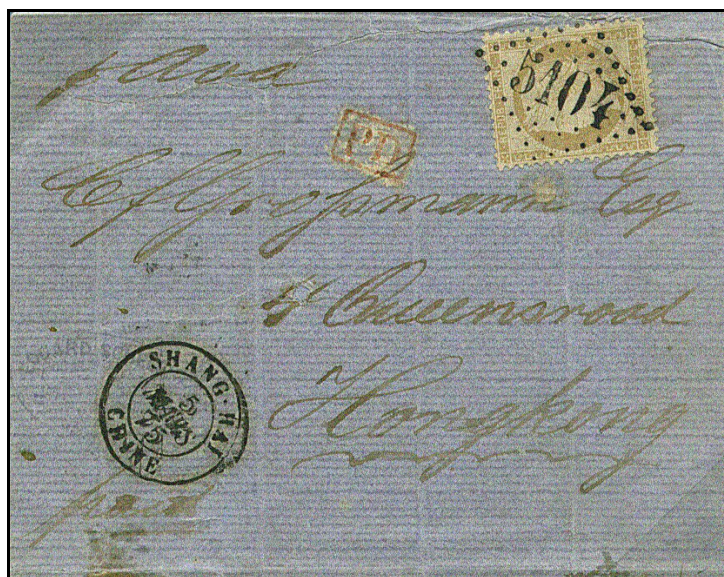 p Ava
5104
PD
C. f. Grossmann Esq
Queensroad
Hongkong
SHANG-HAI
5
MARS
75
CHINE
paid